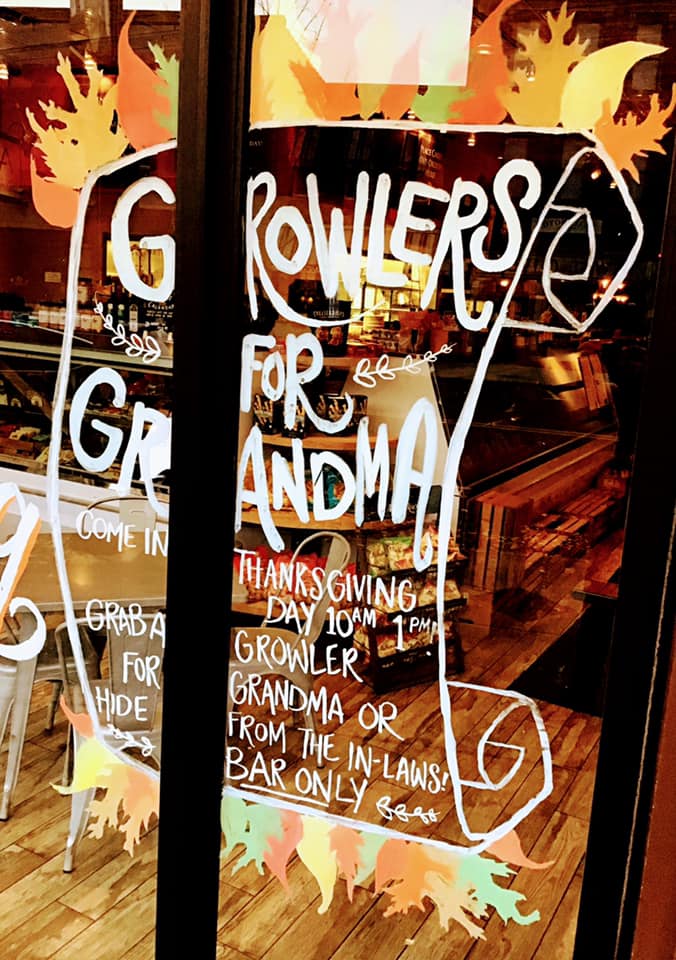 GROWLERS
FOR
GRANDMA
COME IN THANKSGIVING
DAY 10AM 1PM
GRAB A GROWLER
FOR GRANDMA OR
HIDE FROM THE IN-LAWS!
BAR ONLY